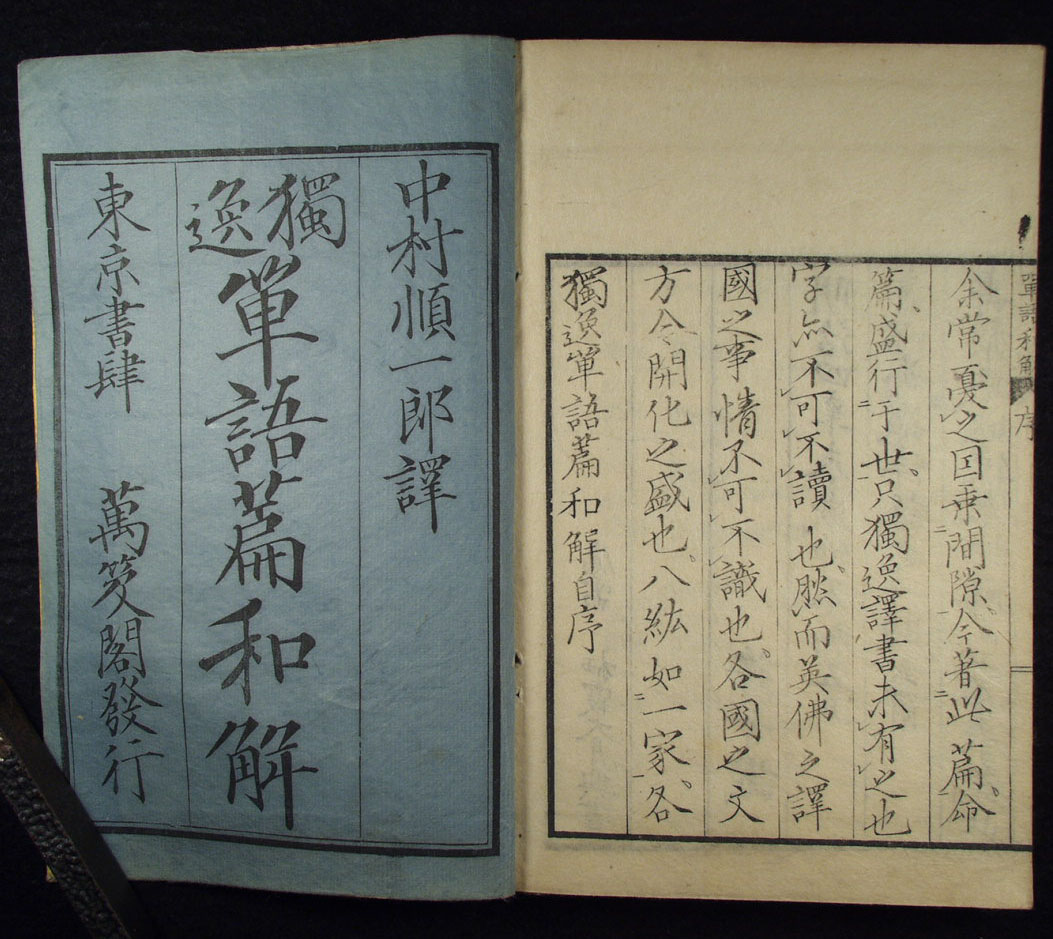 中村順一郎譯
獨逸單語篇和解
東京書肆 萬笈閣發行
獨逸單語篇和解自序
方今開化之盛也、八紘如一家、各
國之事情不可不識也、各國之文
字亦不可不讀也、然而英佛之譯
篇、盛行于世、只獨逸譯書未有之也
余常憂之因乗間隙、今著此篇、命
單語和解 序